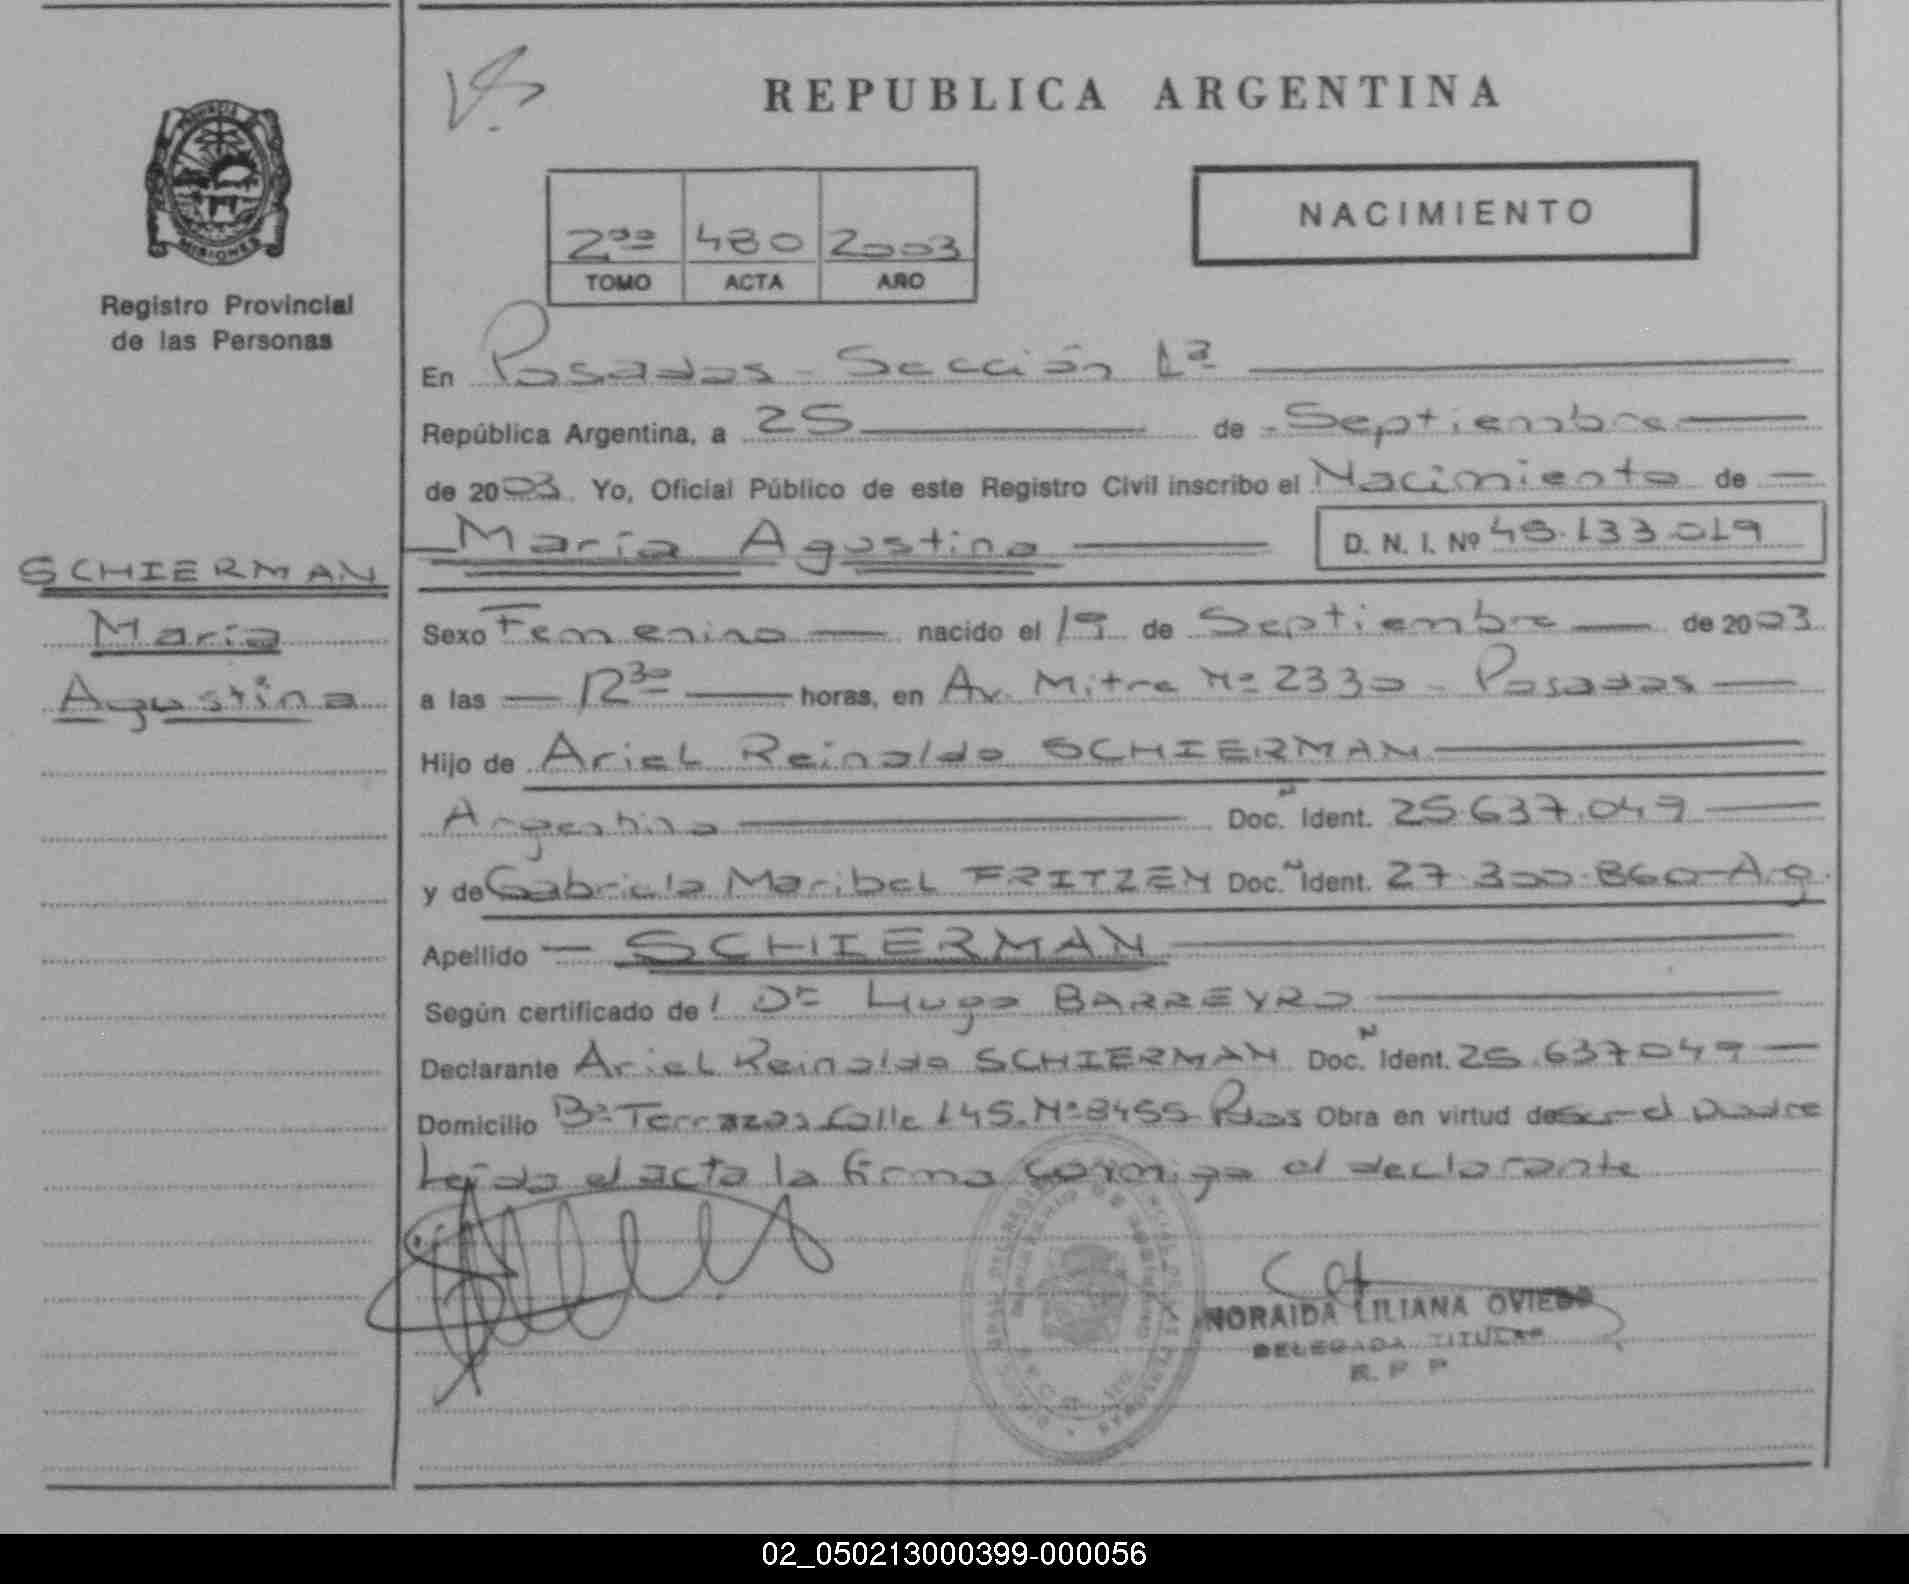 REPUBLICA ARGENTINA
PROVINCIA DE
MISIONES
Registro Provincial
de las Personas
NACIMIENTO
2do 480 2003
TOMO ACTA AÑO
En Posadas - Sección 1ª
República Argentina, a 25 de Septiembre
de 2003. Yo, Oficial Público de este Registro Civil inscribo el Nacimiento de
María Agustina D. N. I. Nº 45.133.019
SCHIERMAN
María
Agustina
Sexo Femenino nacido el 19 de Septiembre de 2003
a las 12 30 horas, en Av. Mitre Nº 2330 - Posadas
Hijo de Ariel Reinaldo SCHIERMAN
Argentino Doc. N Ident. 25.637.049
y de Gabriela Maribel FRITZEN Doc. N Ident. 27.300.860-Arg.
Apellido SCHIERMAN
Según certificado de l Dr Hugo BARREYRO
Declarante Ariel Reinaldo SCHIERMAN Doc. N Ident. 25.637049
Domicilio Bº Terrazas Calle 145. Nº 8455 Pdas Obra en virtud de ser el padre
Leída el acta la firma conmigo el declarante
NORAIDA LILIANA OVIEDO
DELEGADA TITULAR
R. P. P
02_050213000399-000056